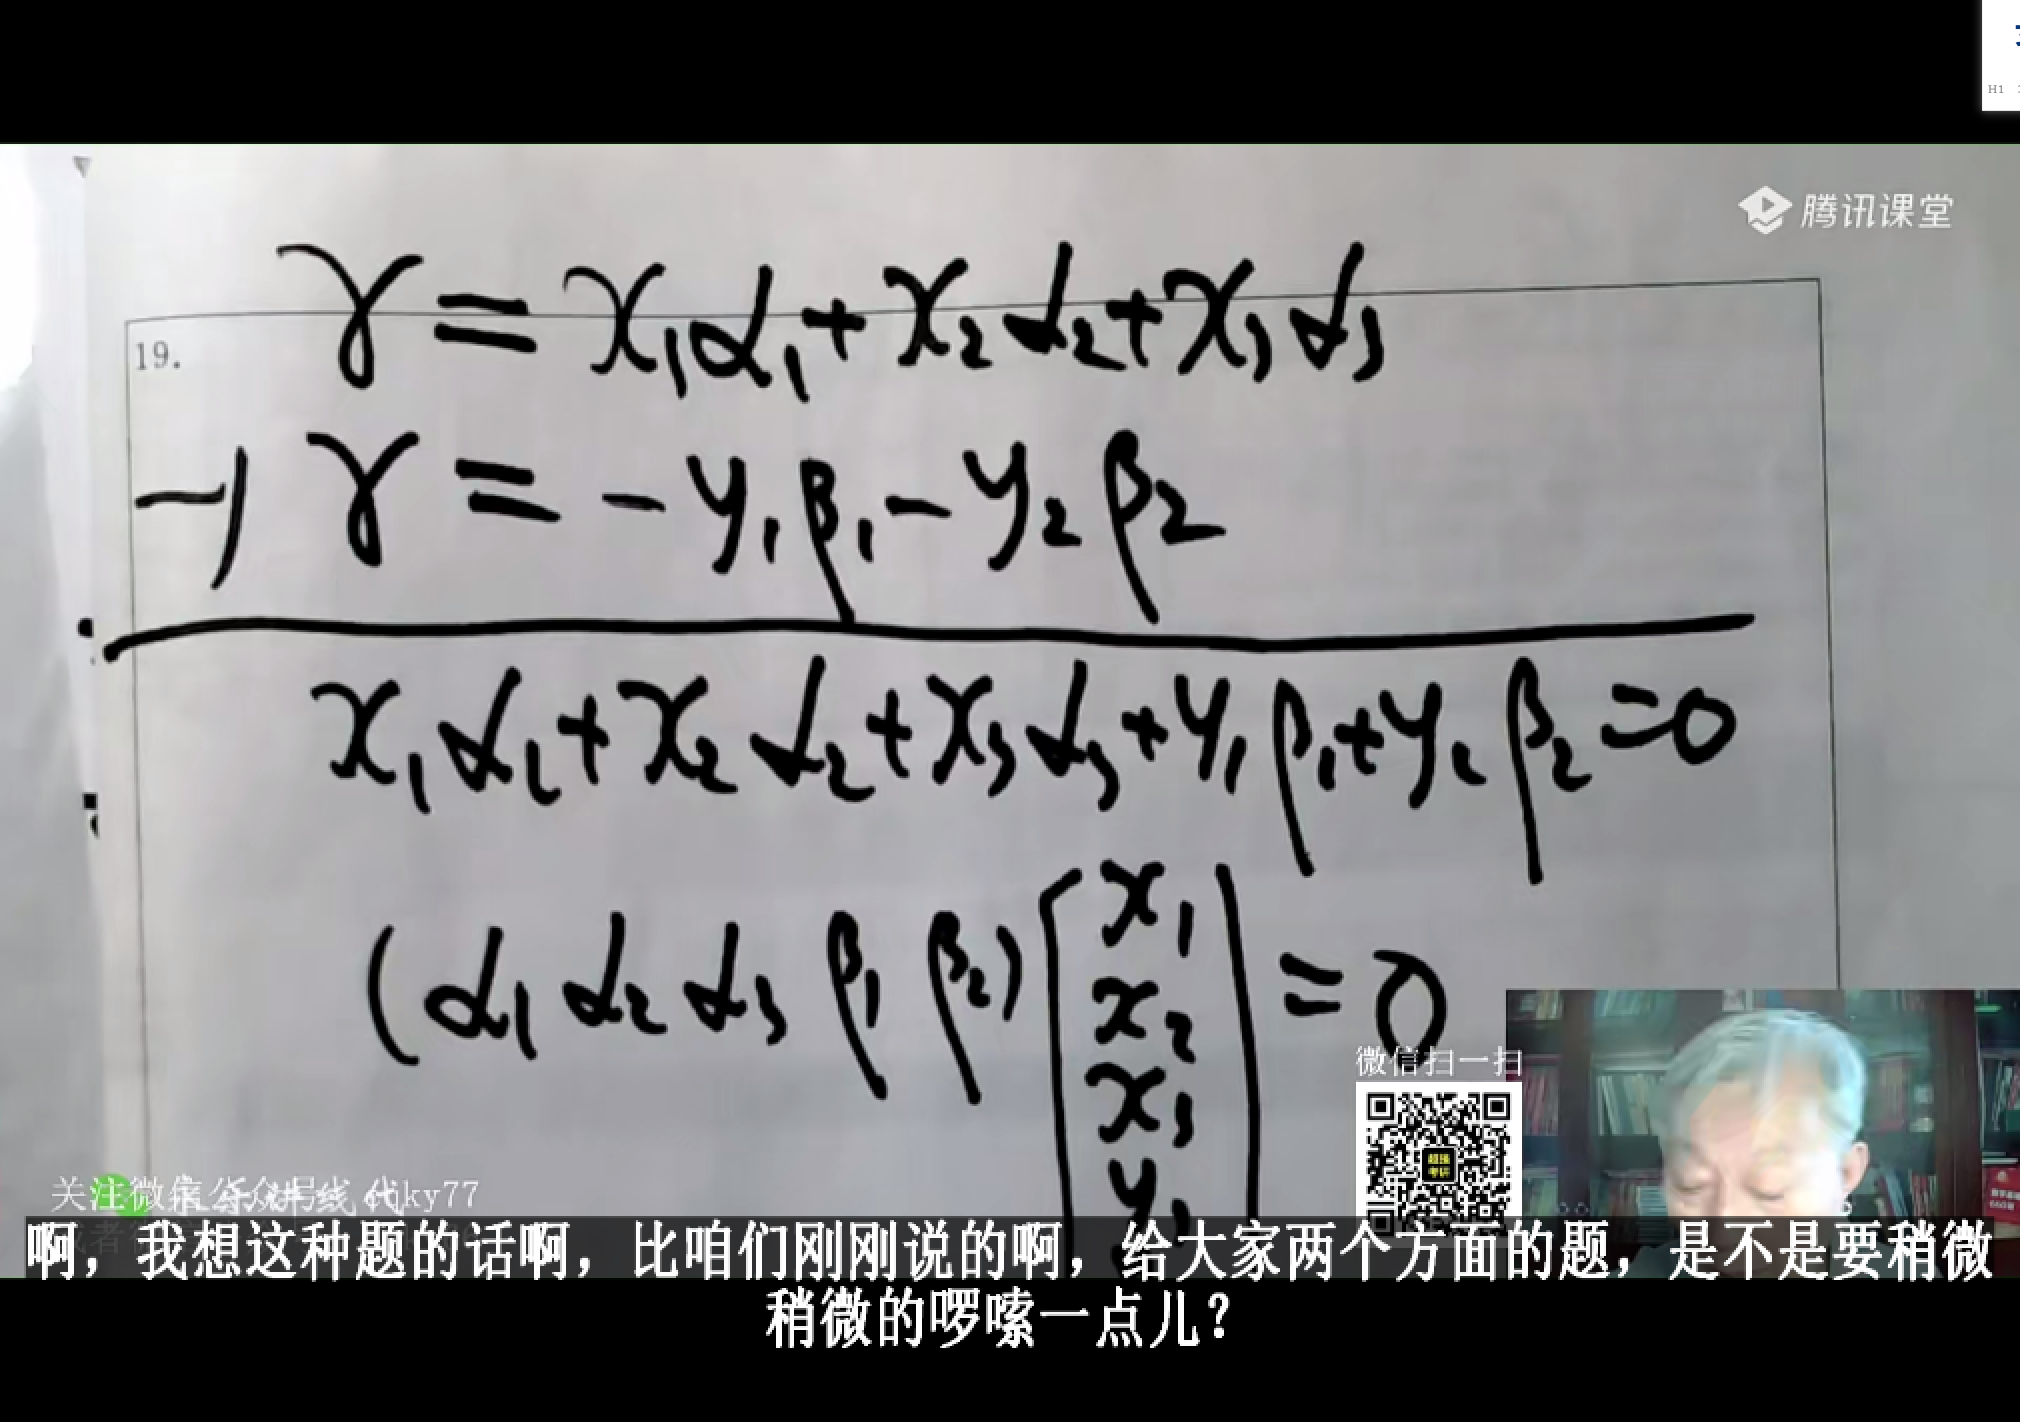 H1
腾讯课堂
19.
γ = x₁α₁ + x₂α₂ + x₃α₃
-) γ = - y₁β₁ - y₂β₂
x₁α₁ + x₂α₂ + x₃α₃ + y₁β₁ + y₂β₂ = 0
(α₁ α₂ α₃ β₁ β₂) [x₁
x₂
x₃
y₁] = 0
微信扫一扫
关注微信公众号
ky77
啊，我想这种题的话啊，比咱们刚刚说的啊，给大家两个方面的题，是不是要稍微
稍微的啰嗦一点儿？